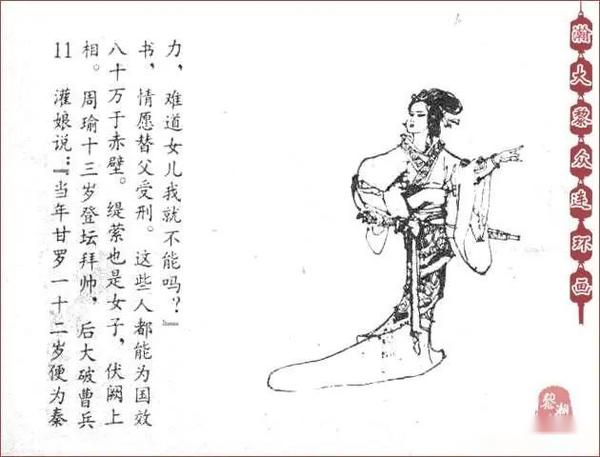 11 灌娘说:『当年甘罗一十二岁便为秦
相。周瑜十三岁登坛拜帅,后大破曹兵
八十万于赤壁。缇萦也是女子,伏阙上
书,情愿替父受刑。这些人都能为国效
力,难道女儿我就不能吗?』
瀚大黎众连环画